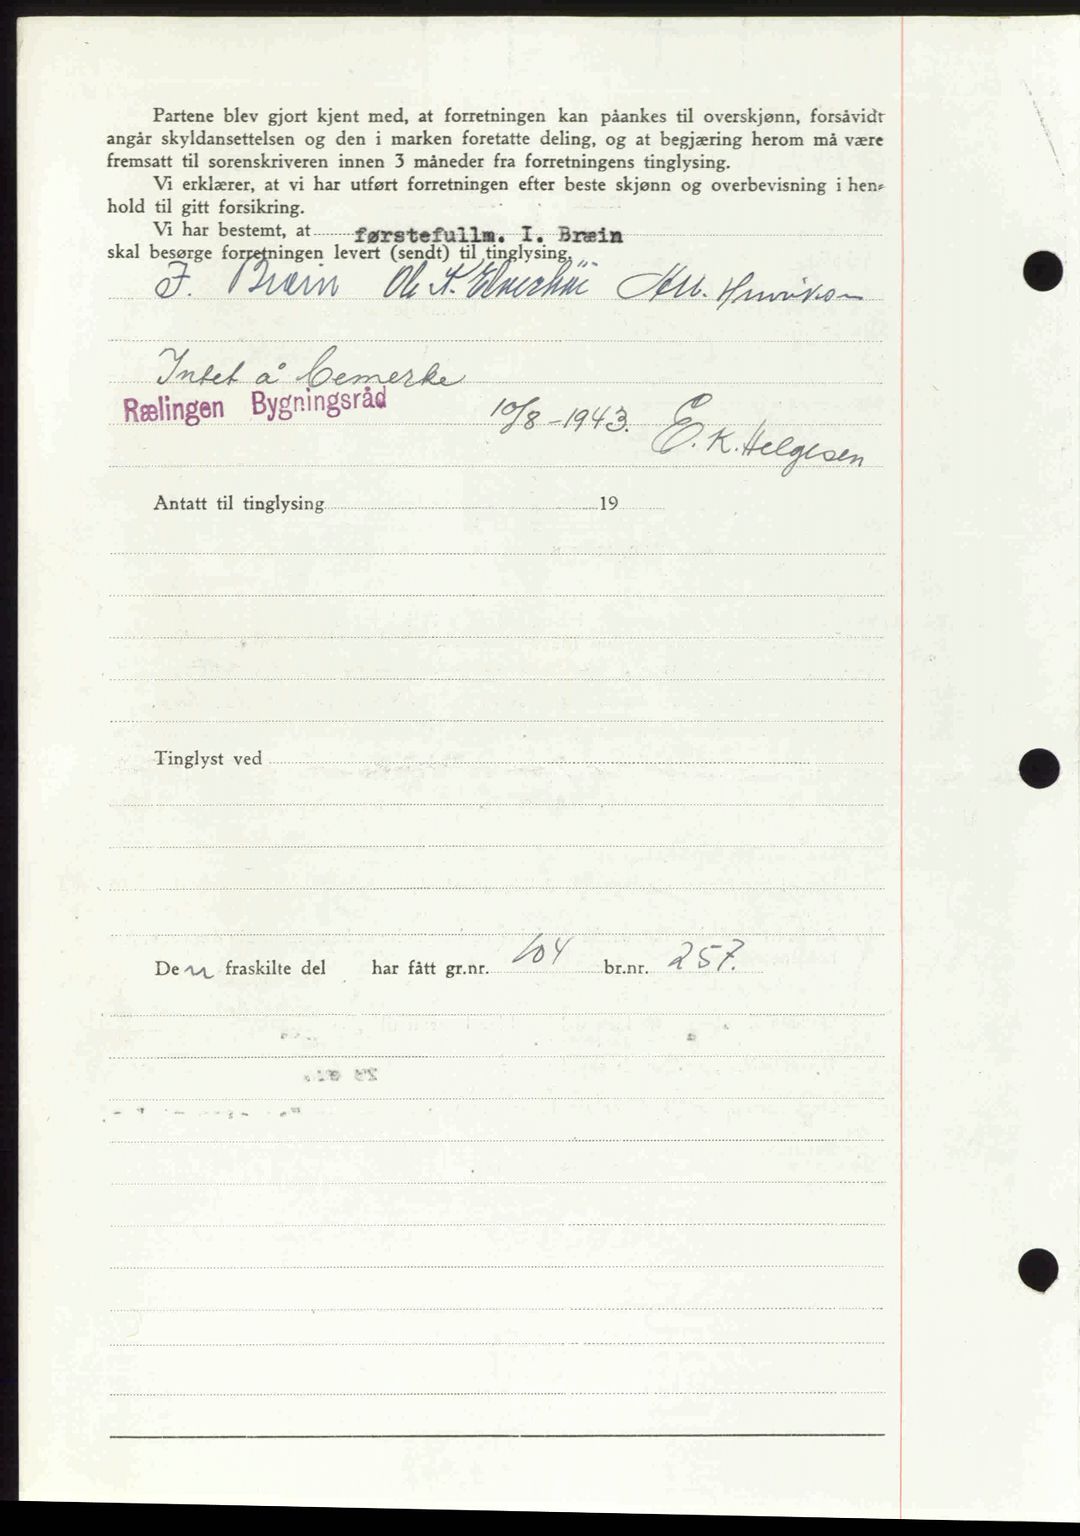 Partene blev gjort kjent med, at forretningen kan påankes til overskjønn, forsåvidt
angår skyldansettelsen og den i marken foretatte deling, og at begjæring herom må være
fremsatt til sorenskriveren innen 3 måneder fra forretningens tinglysing.
Vi erklærer, at vi har utført forretningen efter beste skjønn og overbevisning i hen-
hold til gitt forsikring.
Vi har bestemt, at førstefullm. I. Bræin
skal besørge forretningen levert (sendt) til tinglysing.
I. Bræin Ole K. Elverhøi
Intet å bemerke
Rælingen Bygningsråd
10/8-1943. E. K. Helgesen
Antatt til tinglysing 19
Tinglyst ved
Den fraskilte del har fått gr.nr. 104 br.nr. 257.